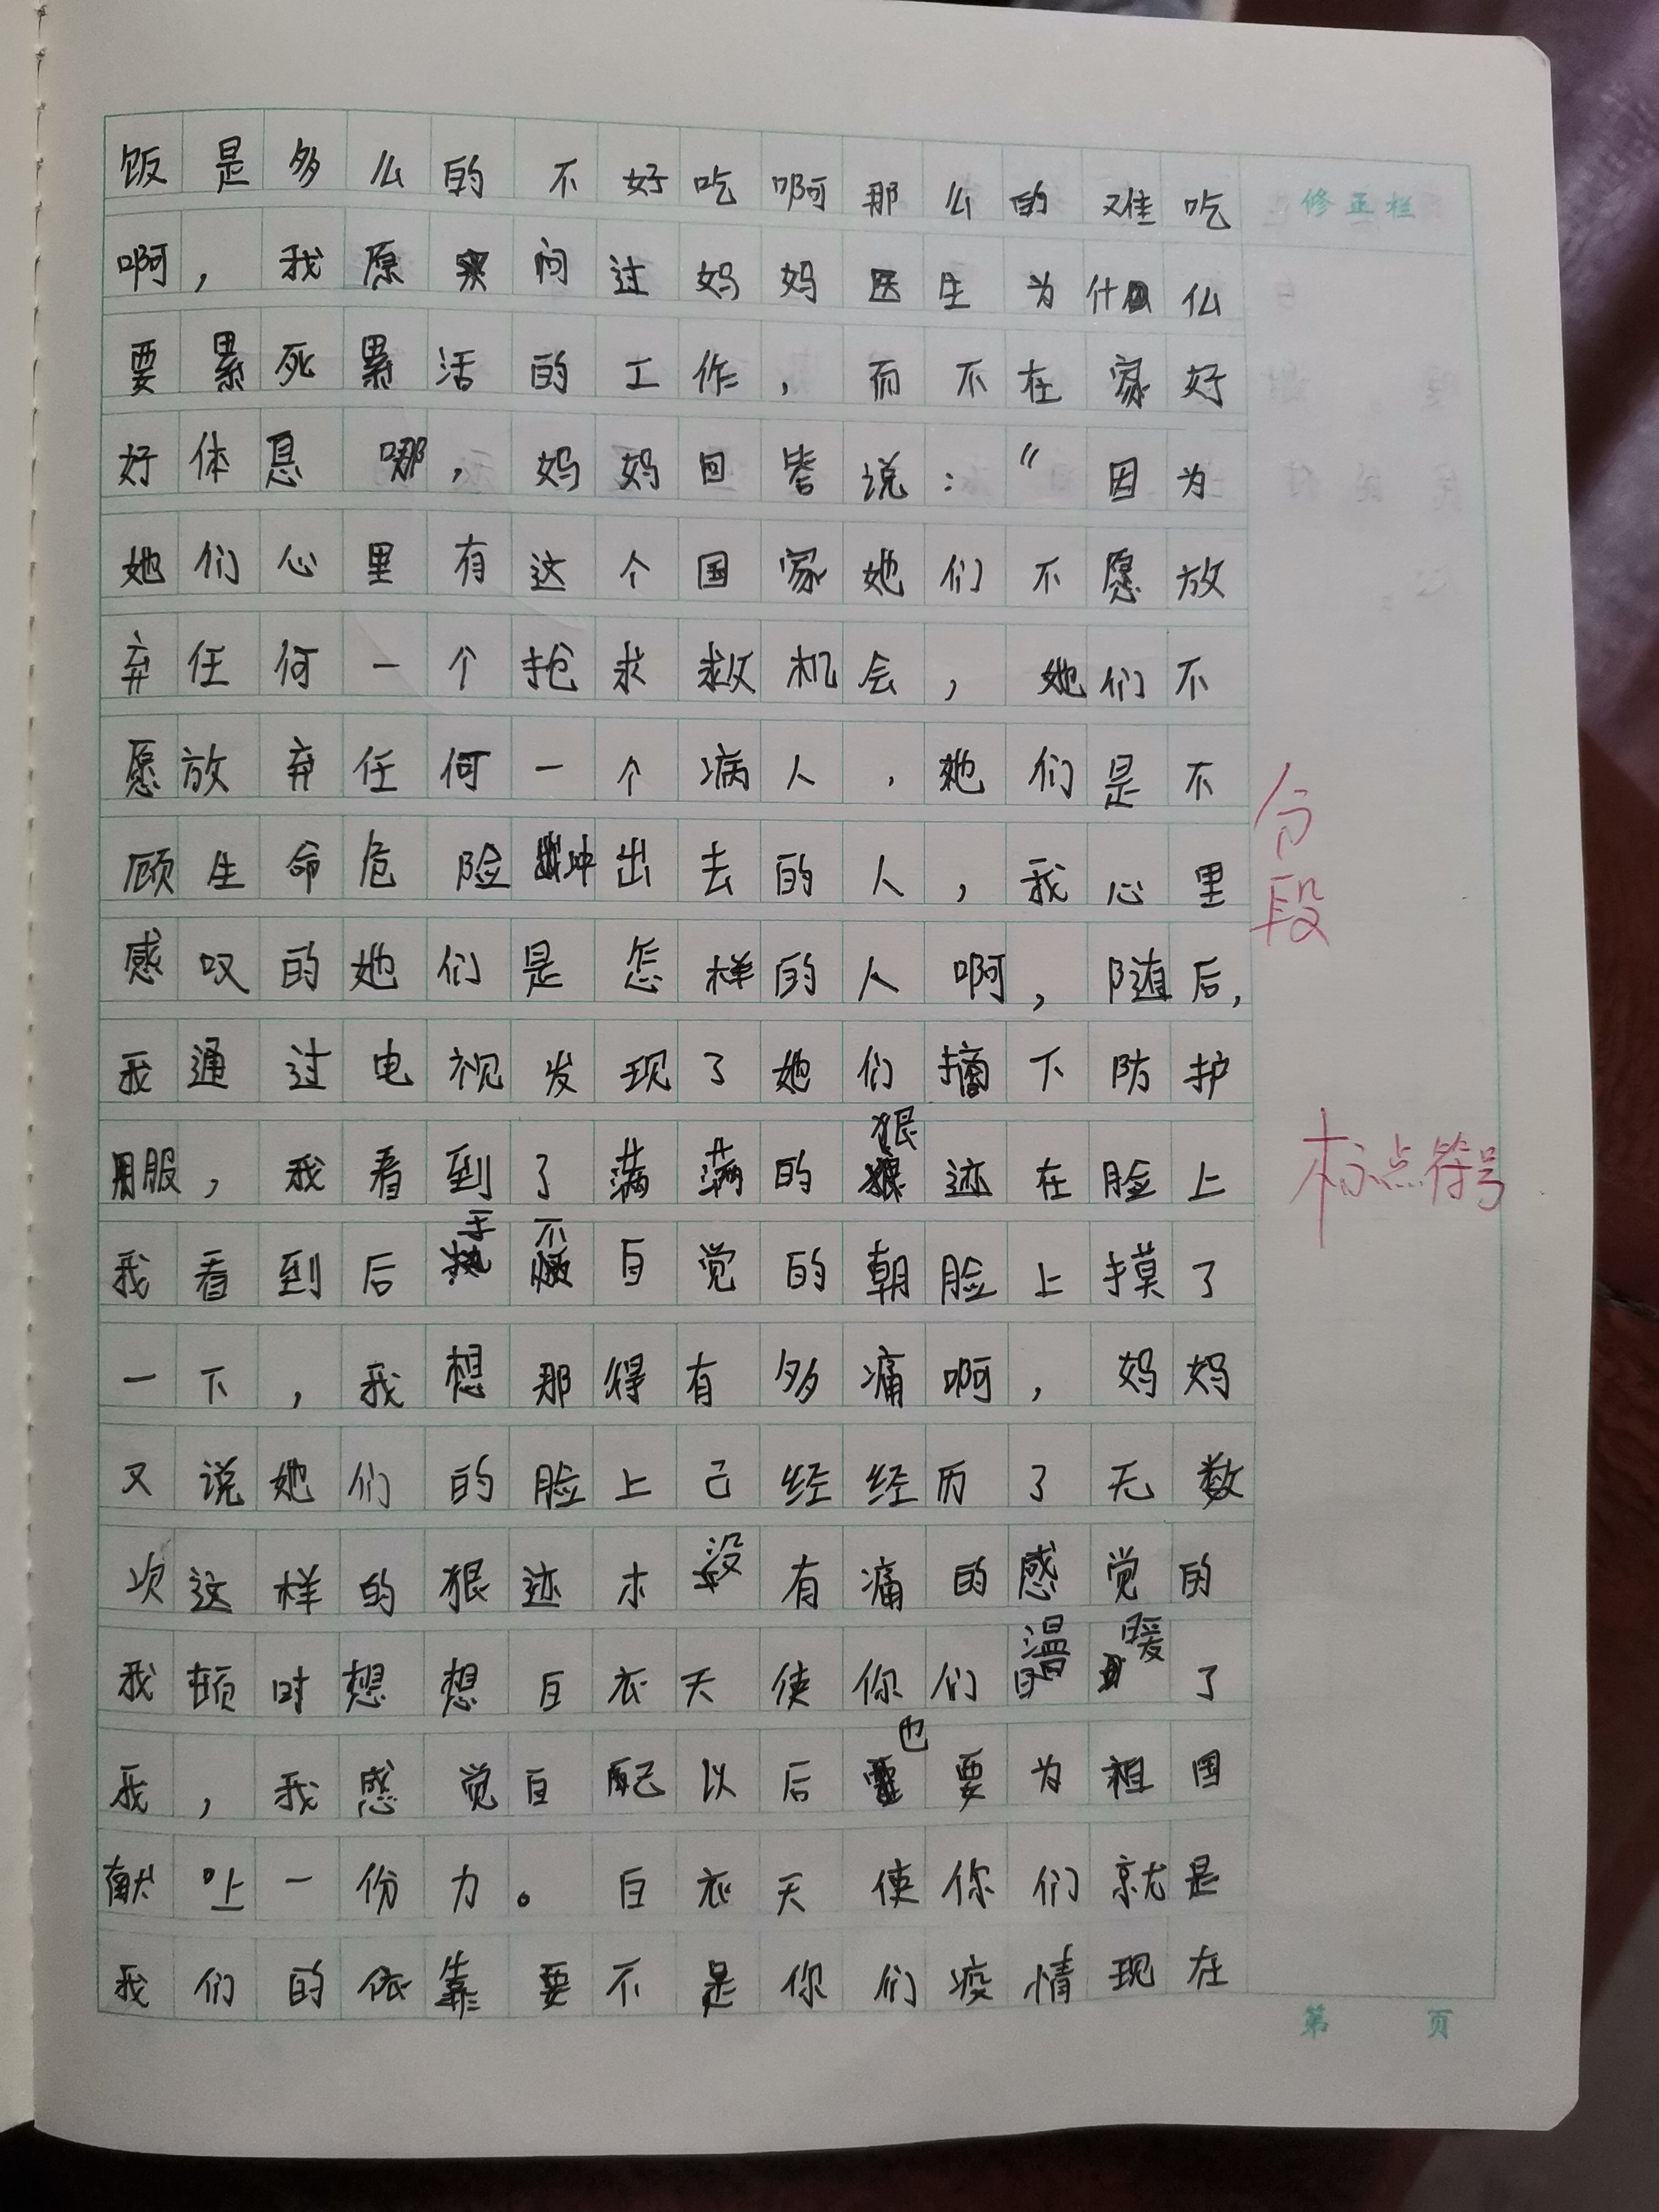 饭是多么的不好吃啊那么的难吃
修正栏
啊，我原问过妈妈医生为什么
要累死累活的工作，而不在家好
好体息哪，妈妈回答说：“因为
她们心里有这个国家她们不愿放
弃任何一个抢求救机会，她们不
愿放弃任何一个病人，她们是不
顾生命危险冲出去的人，我心里
分段
感叹的她们是怎样的人啊，随后，
我通过电视发现了她们摘下防护
服，我看到了满满的狠迹在脸上
标点符号
我看到后手不自觉的朝脸上摸了
一下，我想那得有多痛啊，妈妈
又说她们的脸上己经经历了无数
次这样的狠迹木没有痛的感觉的
我顿时想想白衣天使你们温暖了
我，我感觉自己以后也要为祖国
献上一份力。白衣天使你们就是
我们的依靠要不是你们疫情现在
第 页